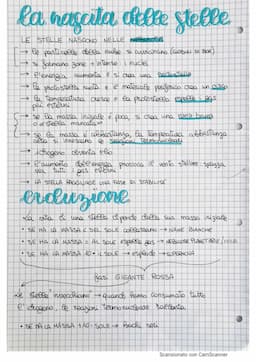 la nascita delle stelle
LE STELLE NASCONO NELLE
→ le particelle della nube si avvicinano
→ si formano zone + intense | nuclei
→ l'energia aumenta e si crea una protostella
→ la protostella ruota e il materiale periferico crea un disco
→ la temperatura cresce e la protostella espelle i gas
più esterni
→ se la massa iniziale è poca, si crea una
o "stella mancata"
→ se la massa è abbastanza, la temperatura è abbastanza
alta si innescano le reazioni termonucleari
→ idrogeno diventa elio
→ l'aumento dell'energia provoca il vento stellare spazza
via tutti i gas esterni
→ LA STELLA RAGGIUNGE UNA FASE DI STABILITÀ
evoluzione
La vita di una stella dipende dalla sua massa iniziale
• SE HA LA MASSA < DEL SOLE → NANE BIANCHE
• SE HA LA MASSA = AL SOLE espelle gas → NEBULOSE PLANETARIE
• SE HA LA MASSA + 10 • SOLE → esplode → SUPERNOVA
fasi GIGANTE ROSSA
Le stelle "invecchiano" quando hanno consumato tutto
l'idrogeno, le reazioni termonucleari rallenta
• SE HA LA MASSA + 10 • SOLE → buchi neri
Scansionato con CamScanner